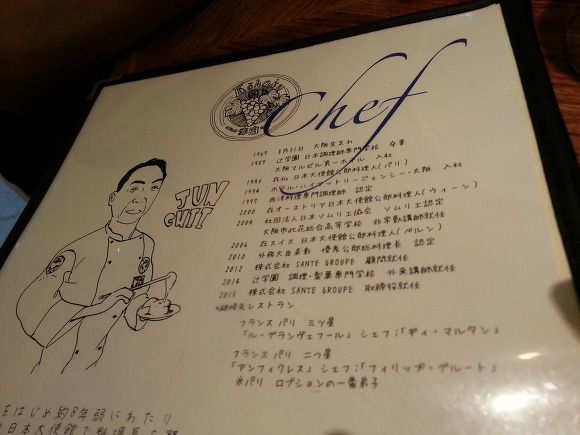 Chef
JUN
CHII
1969 8月31日 大阪生まれ
1989 辻学園 日本調理師専門学校 卒業
大阪マルビル第一ホテル 入社
1993 在仏 日本大使館公邸料理人(パリ)
1994 ホテル・ハイアットリージェンシー・大阪 入社
1999 西洋料理専門調理師 認定
2000 在オーストリア日本大使館公邸料理人(ウィーン)
2004 社団法人日本ソムリエ協会 ソムリエ認定
大阪市此花総合高等学校 非常勤講師就任
2006 在スイス 日本大使館公邸料理人(ベルン)
2010 外務大臣表彰 優秀公邸料理長 認定
2012 株式会社 SANTE GROUPE 顧問就任
2014 辻学園 調理・製菓専門学校 外来講師就任
2015 株式会社 SANTE GROUPE 取締役就任
レストラン
フランス パリ 三ツ星
「ル・グランヴェフール」シェフ;「ギィ・マルタン」
フランス パリ 二つ星
「アンフィクレス」シェフ;「フィリップ・グルート」
※パリ ロブションの一番弟子
をはじめ約8年弱にわたり
日本大使館で料理長